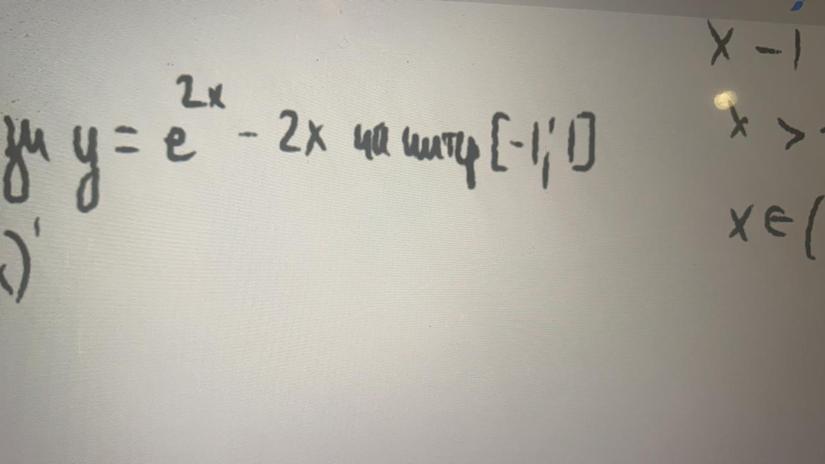 зи y = e^{2x} - 2x на интер [-1; 1]
)'
x - 1
x >
x ∈ (